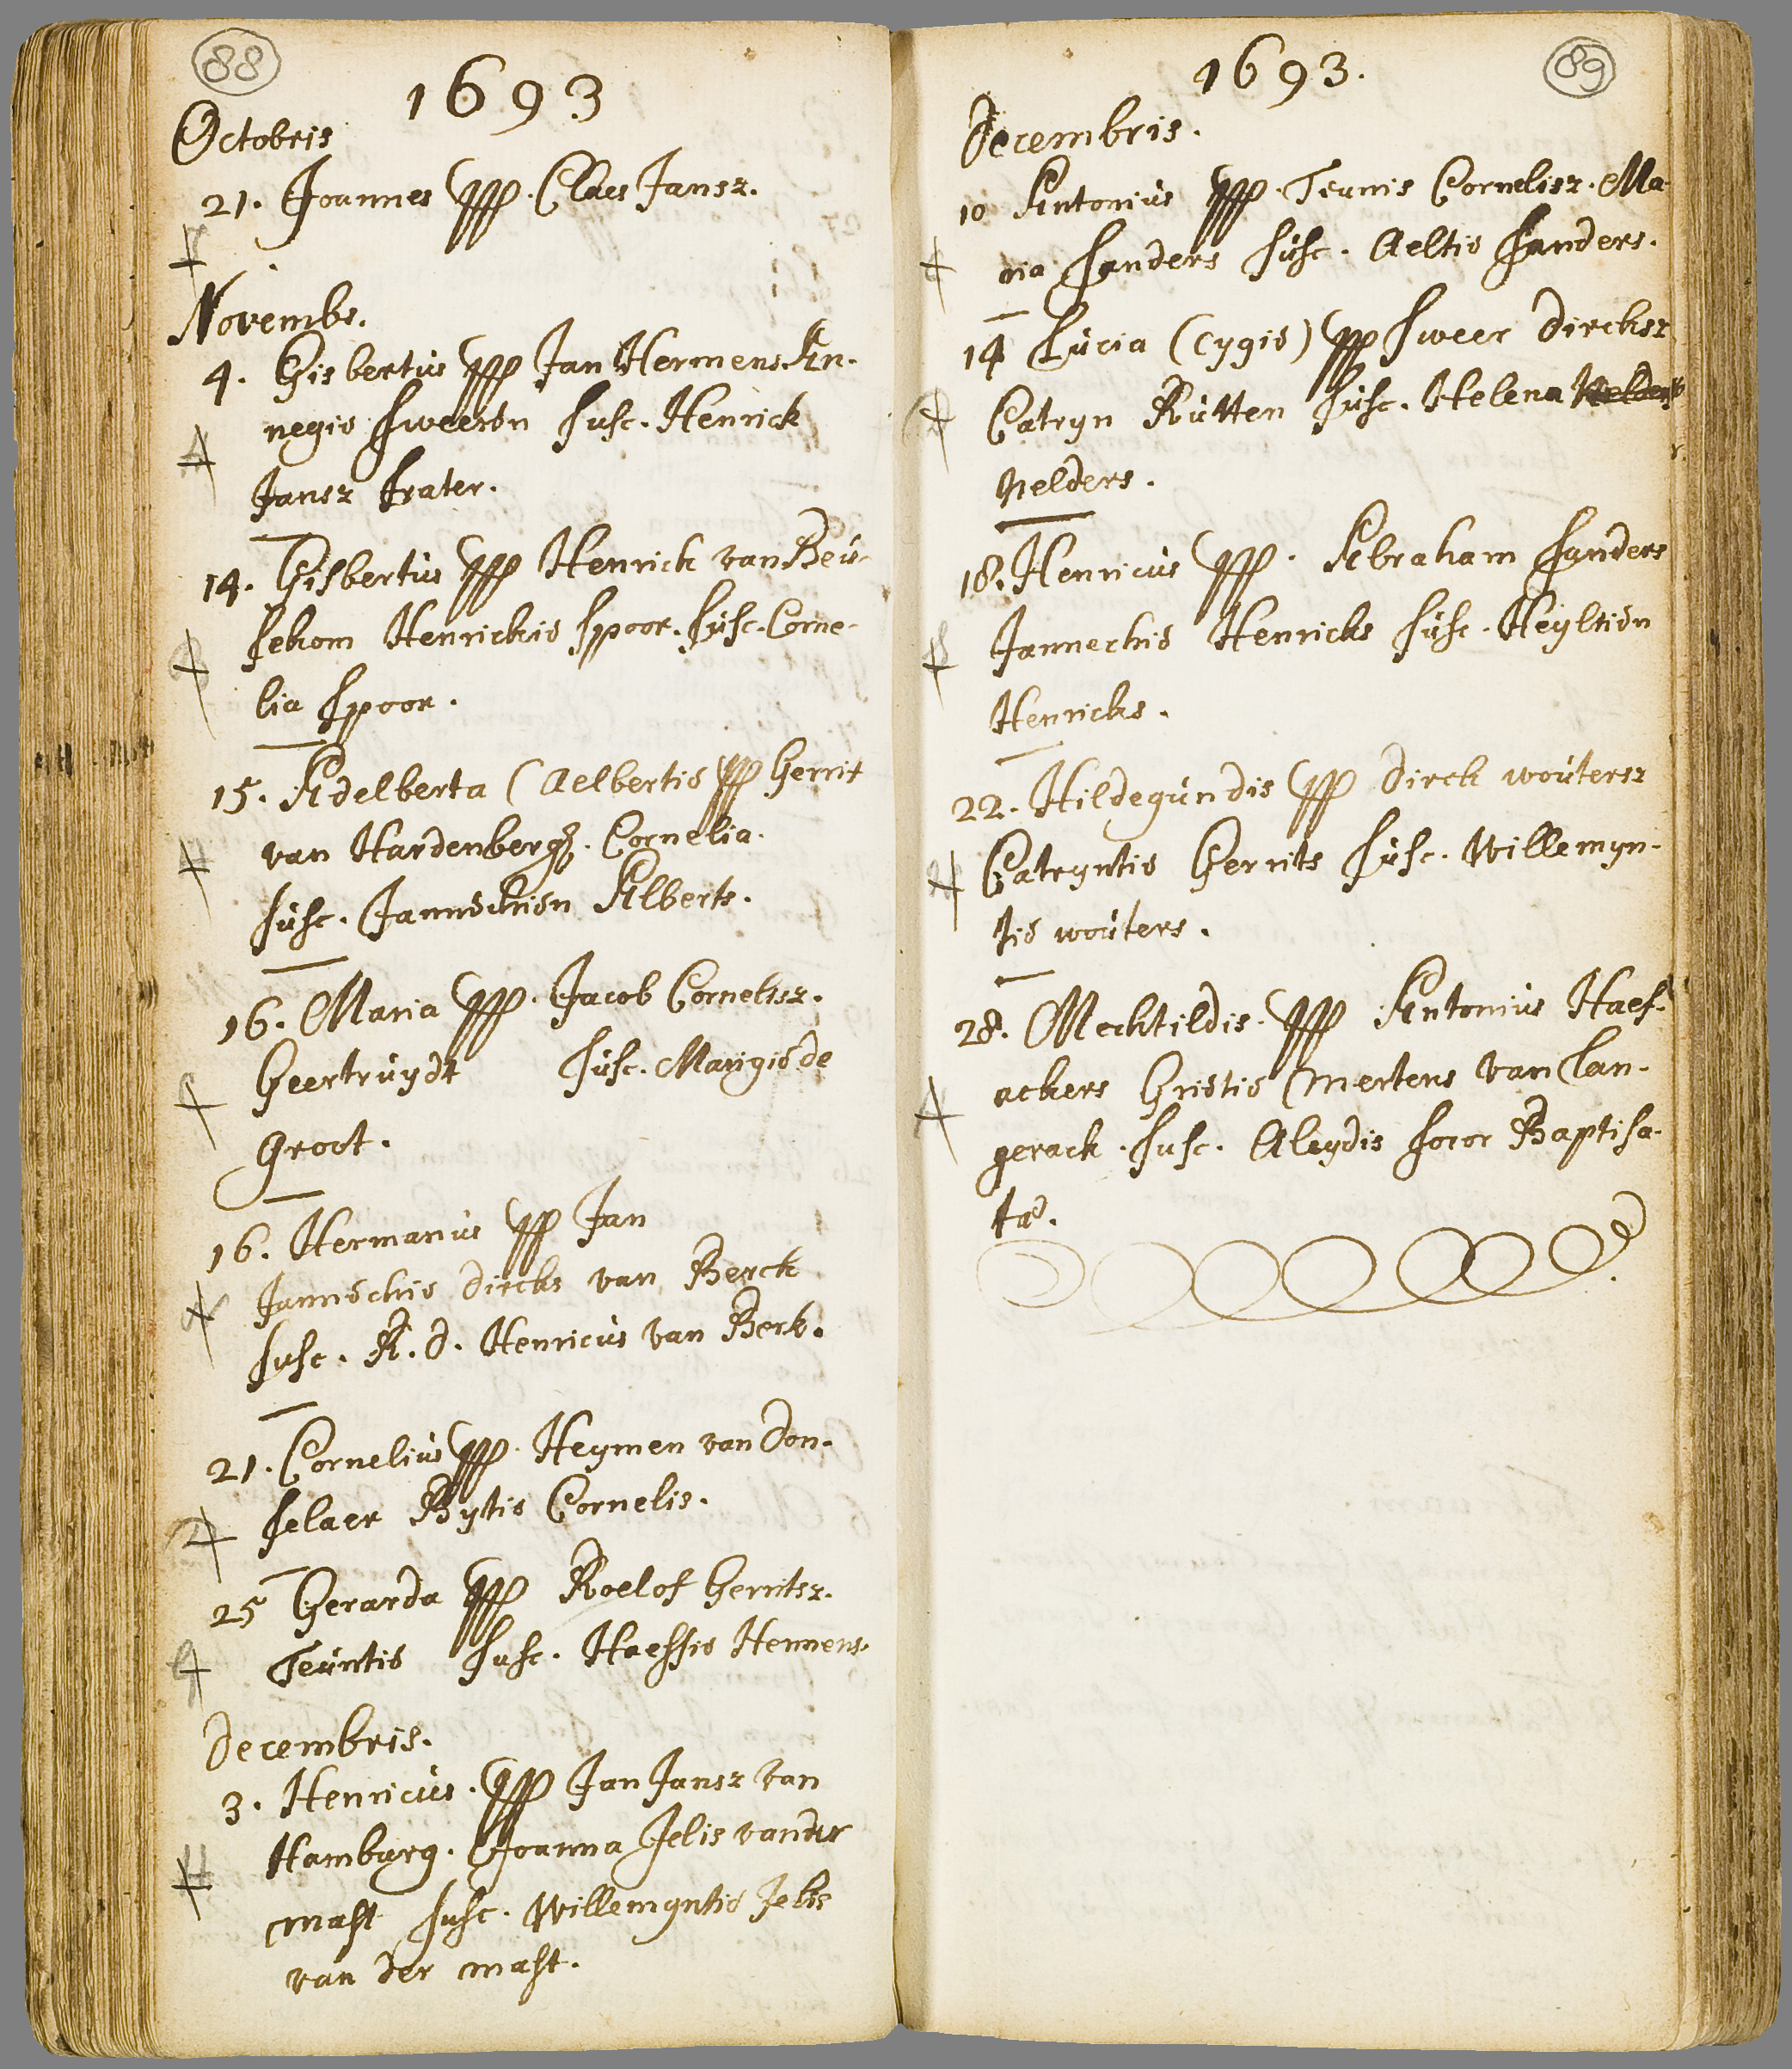 88
1693
Octobris
21. Joannes ppp. Claes Jansz.
Novembr.
4. Gisbertus ppp Jan Hermens. An-
negie Sweeren susc. Henrick
Jansz frater.
14. Gisbertus ppp Henrick van Beu-
sekom Henrickie Spoor. susc. Corne-
lia Spoor.
15. Adelberta (Aelbertie ppp Gerrit
van Hardenberg. Cornelia.
susc. Jannechien Alberts.
16. Maria ppp. Jacob Cornelisz.
Geertruydt susc. Marigie de
Groot.
16. Hermanus ppp Jan
Jannechie Dircks van Berck
susc. R. d. Henricus van Berk.
21. Cornelius ppp. Heymen van Don-
selaer Bytie Cornelis.
25 Gerarda ppp Roelof Gerritsz.
Teuntie susc. Haessie Hennens.
Decembris.
3. Henricus. ppp Jan Jansz van
Hamburg. Joanna Jelis vander
mast susc. Willemyntie Jelis
van der mast.
89
1693.
Decembris.
10 Antonius ppp. Teunis Cornelisz. Ma-
ria Sanders susc. Aeltie Sanders.
14 Lucia (Cygie) ppp Sweer Dircksz
Catryn Rutten susc. Helena
Nelders.
18. Henricus ppp. Abraham Sanders
Jannechie Henricks susc. Heyltien
Henricks.
22. Hildegundis ppp Dirck woutersz
Catryntie Gerrits susc. Willemyn-
tie wouters.
28. Mechtildis. ppp Antonius Haef-
ackers Grietie Mertens van Lan-
gerack. susc. Aleydis soror Baptisa-
tae.